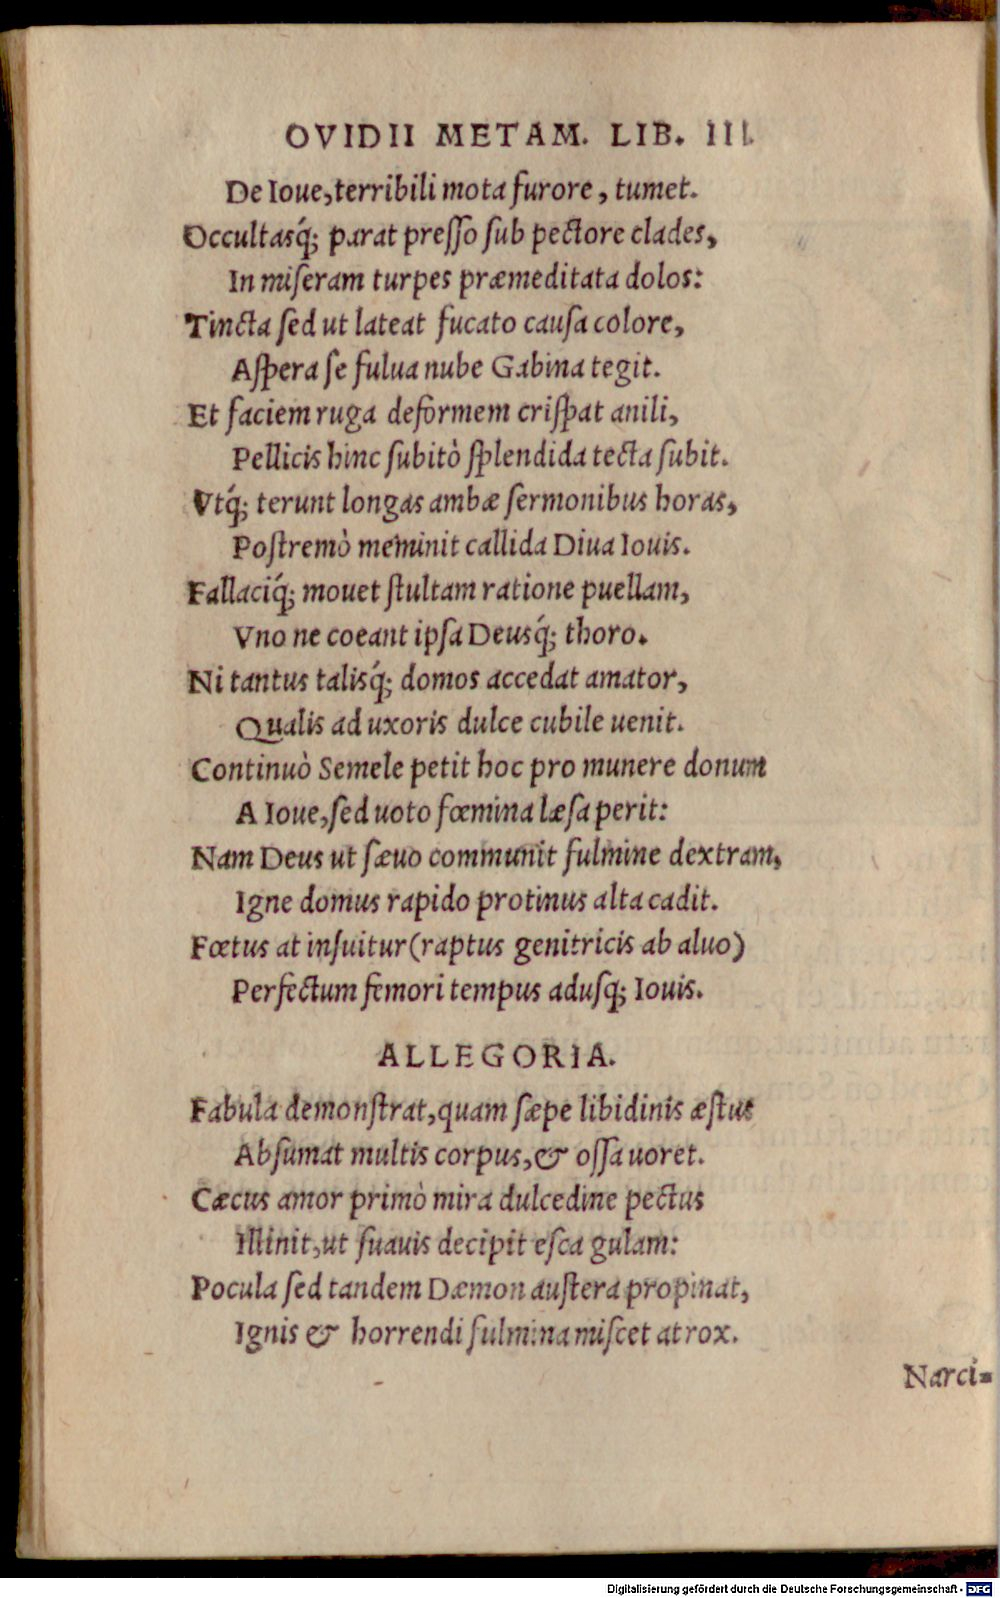 OVIDII METAM. LIB. III.
De Ioue, terribili mota furore, tumet.
Occultasq́; parat presso sub pectore clades,
In miseram turpes præmeditata dolos:
Tincta sed ut lateat fucato causa colore,
Aspera se fulua nube Gabina tegit.
Et faciem ruga deformem crispat anili,
Pellicis hinc subitò splendida tecta subit.
Vtq́; terunt longas ambæ sermonibus horas,
Postremò meminit callida Diua Iouis.
Fallaciq́; mouet stultam ratione puellam,
Vno ne coeant ipsa Deusq́; thoro.
Ni tantus talisq́; domos accedat amator,
Qualis ad uxoris dulce cubile uenit.
Continuò Semele petit hoc pro munere donum
A Ioue, sed uoto fœmina læsa perit:
Nam Deus ut sæuo communit fulmine dextram,
Igne domus rapido protinus alta cadit.
Fœtus at insuitur (raptus genitricis ab aluo)
Perfectum femori tempus adusq; Iouis.
ALLEGORIA.
Fabula demonstrat, quam sæpe libidinis æstus
Absumat multis corpus, & ossa uoret.
Cæcus amor primò mira dulcedine pectus
Illinit, ut suauis decipit esca gulam:
Pocula sed tandem Dæmon austera propinat,
Ignis & horrendi fulmina miscet atrox.
Narci-
Digitalisierung gefördert durch die Deutsche Forschungsgemeinschaft - DFG